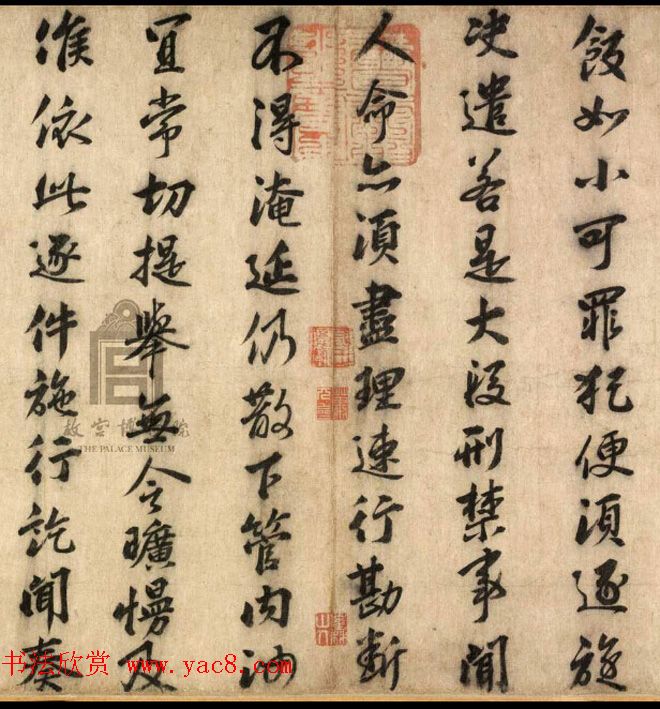 飯如小可罪犯便須逐旋
決遣若是大段刑禁事關
人命亦須盡理速行勘斷
不得淹延仍散下管内
宜常切提舉無令曠慢及
候依此逐件施行訖聞奏
故宫博物院
THE PALACE MUSEUM
书法欣赏 www.yac8.com